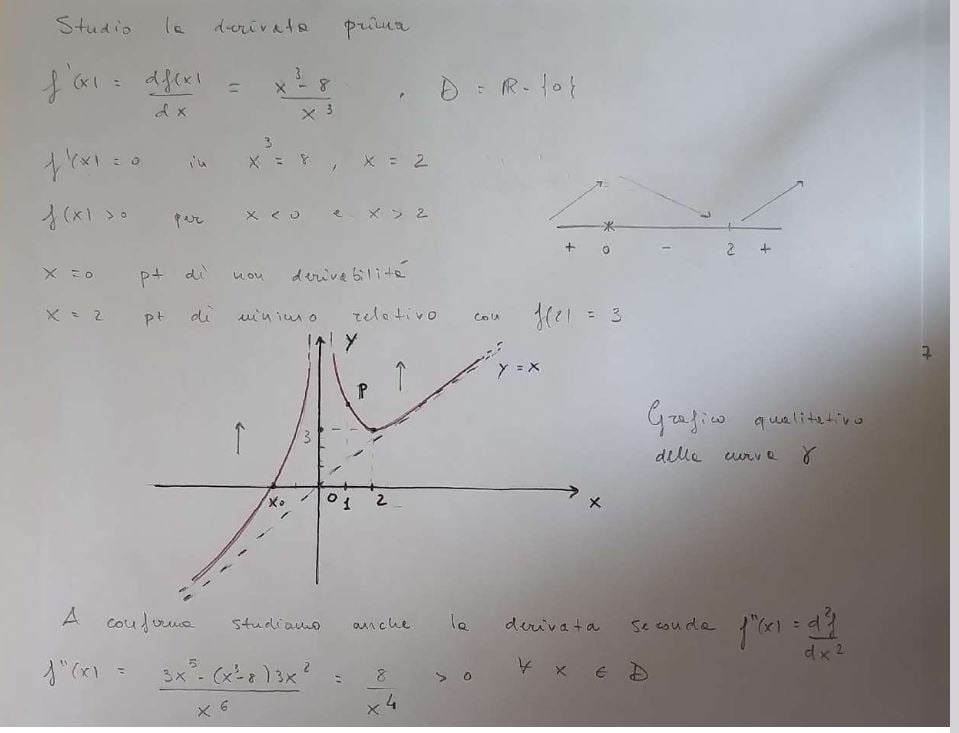 Studio la derivata prima
f'(x) = df(x)/dx = x³-8/x³ , D = R-{0}
f'(x) = 0 in x³ = 8 , x = 2
f(x) >0 per x < 0 e x > 2
+ 0 - 2 +
x = 0 pt di non derivabilità
x = 2 pt di minimo relativo con f(2) = 3
y
y = x
P
3
x₀ 0 1 2 x
Grafico qualitativo
della curva γ
7
A conferma studiamo anche la derivata seconda f"(x) = d²f/dx²
f"(x) = 3x⁵-(x³-8)3x²/x⁶ = 8/x⁴ > 0 ∀ x ∈ D